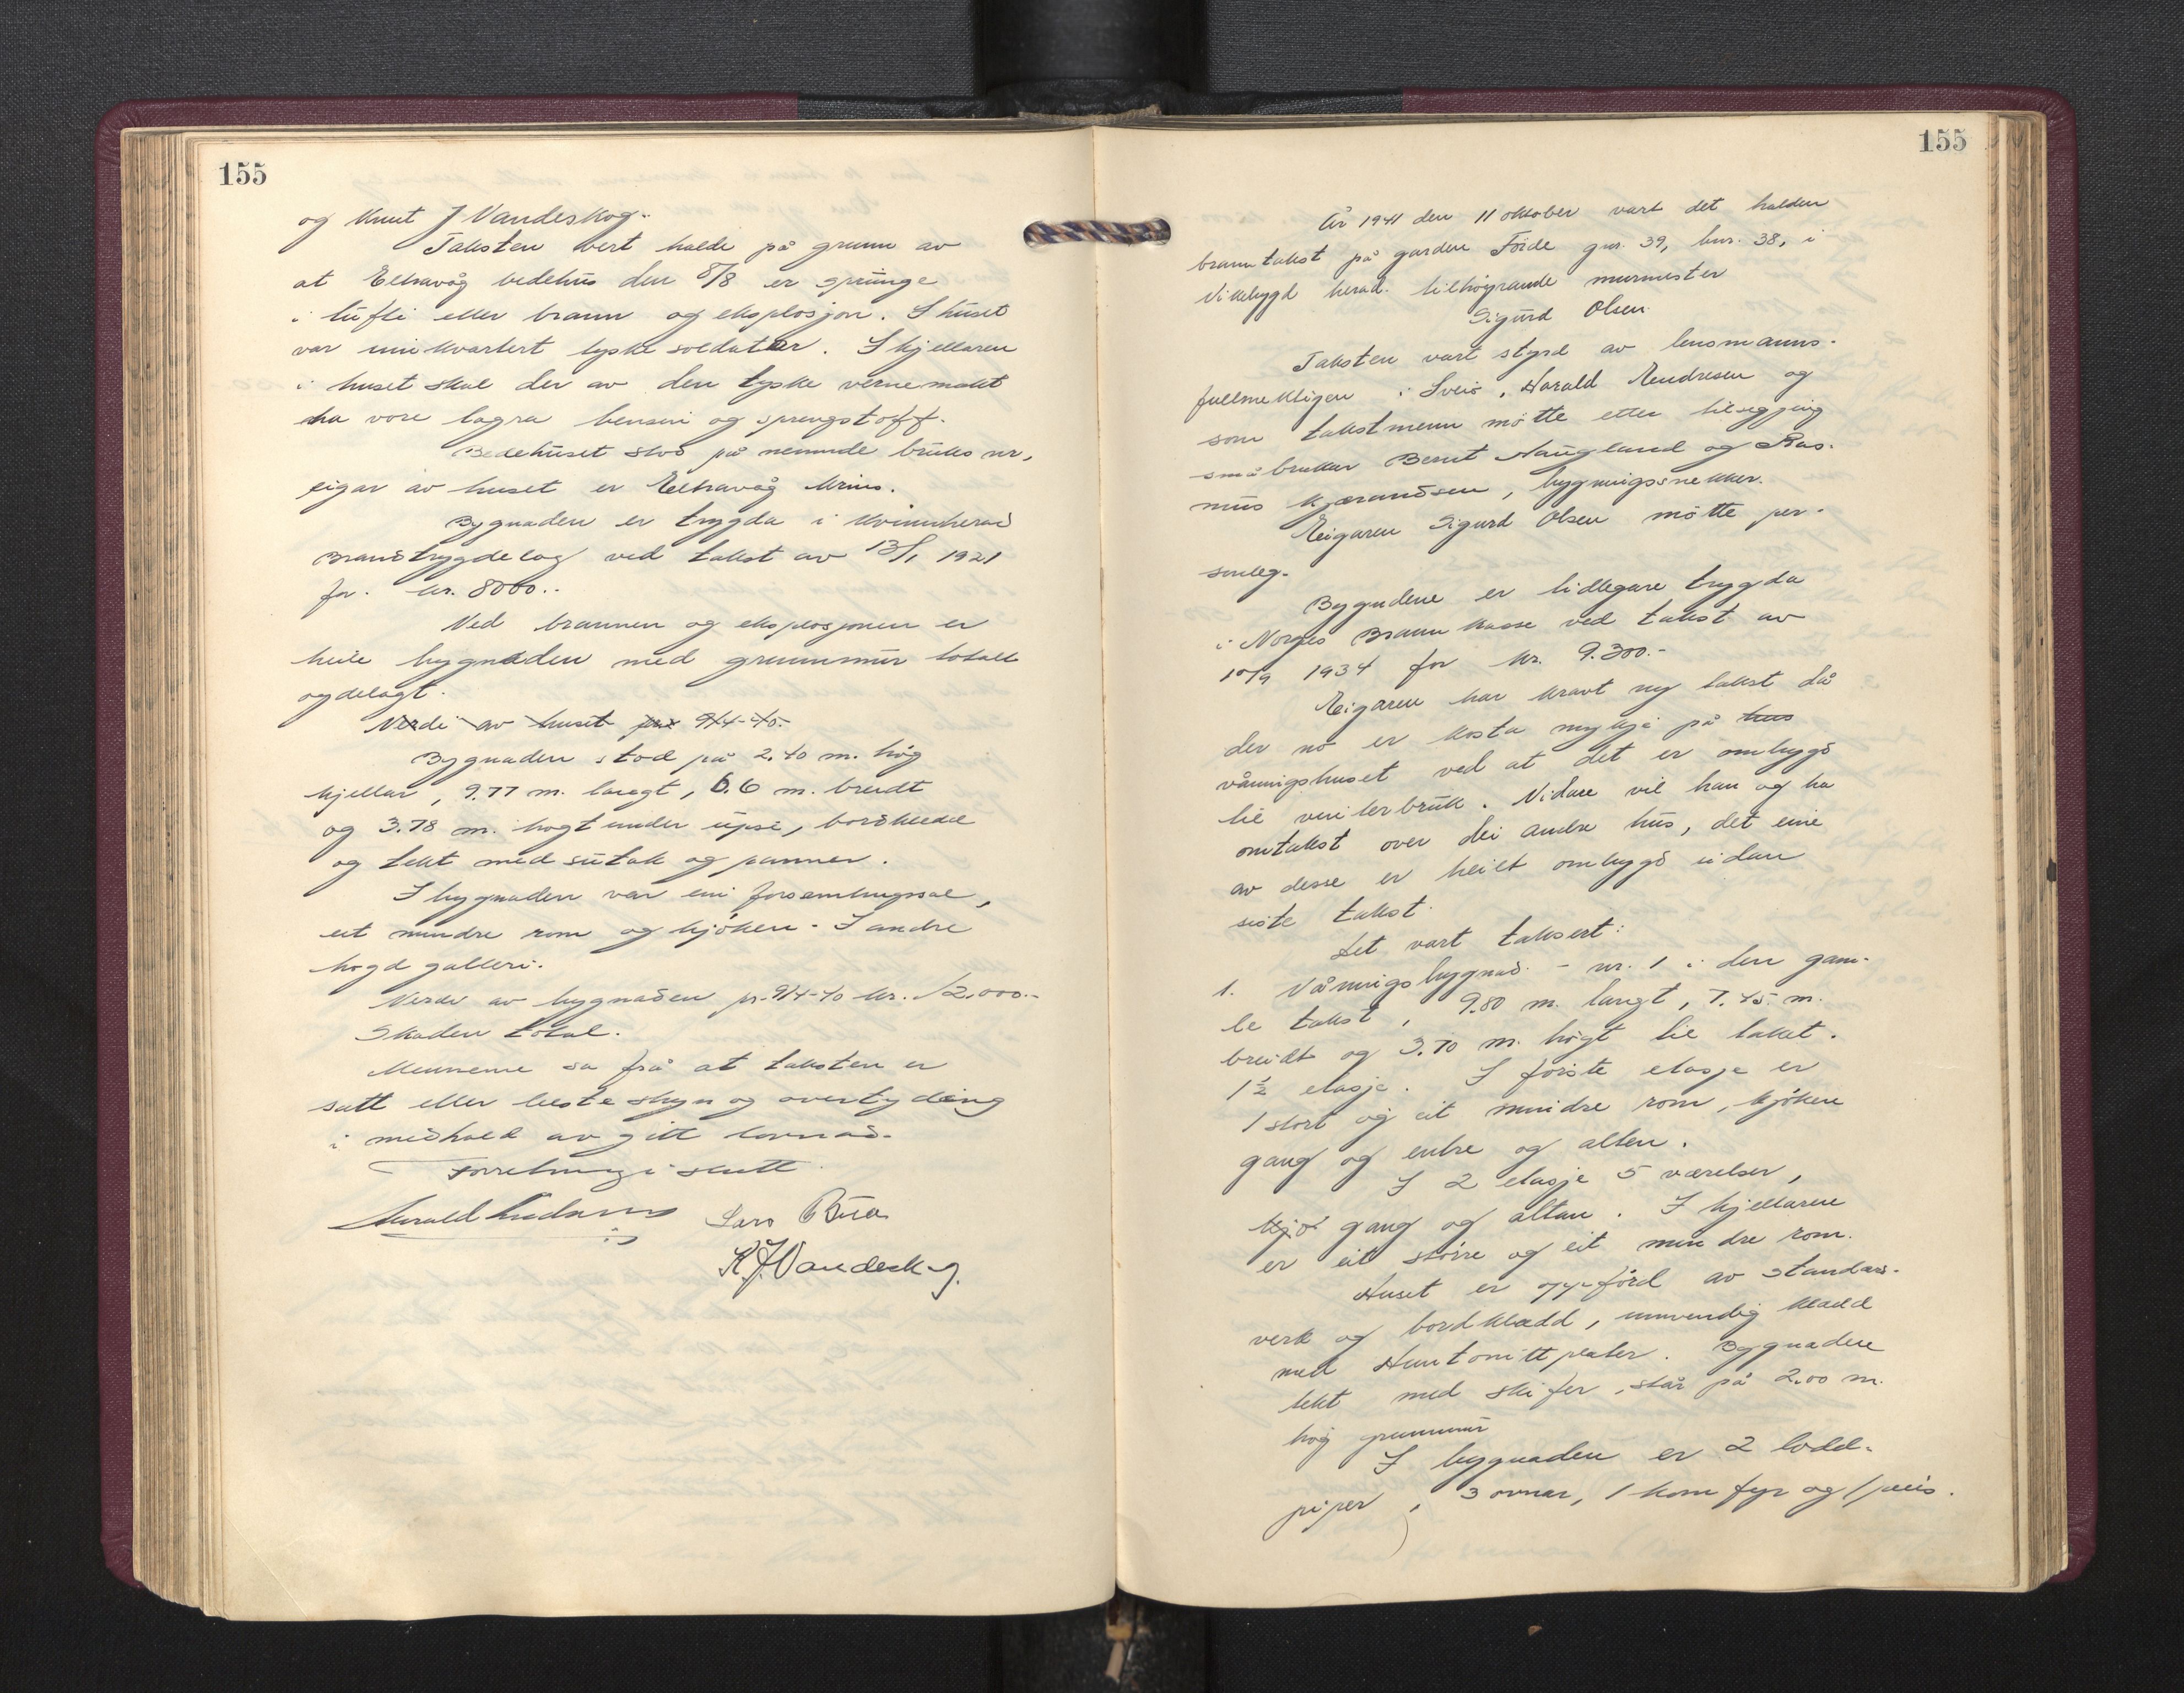 155
og Knut J Vandeskog.
Taksten vert halde på grunn av
at Eltravåg bedehus den 8/8 er sprunge
i lufti etter brann og eksplosjon. I huset
var innkvartert tyske soldatar. I kjellaren
i huset skal der av den tyske vernemakt
ha vore lagra bensin og sprengstoff.
Bedehuset stod på nemnde bruks nr,
eigar av huset er Eltravåg krins.
Bygnaden er trygda i Kvinnherad
Brandtrygdelag ved takst av 13/1 1921
for. kr. 8000..
Ved brannen og eksplosjonen er
heile bygnaden med grunnmur totalt
øydelagt.
Verdi av huset pr. 9/4-40.
Bygnaden stod på 2.40 m. høg
kjellar, 9.77 m. langt, 6.6 m. breidt
og 3.78 m. høgt under upsi, bordkledd
og tekt med sutak og panner.
I bygnaden var ein forsamlingssal,
eit mindre rom og kjøken. I andre
høgd galleri.
Verdi av bygnaden pr. 9/4-40 kr. 12.000.-
Skaden total.
Mennene sa frå at taksten er
satt etter beste skyn og overtyding
i medhald av gitt lovnad.
Forretningi slutt.
Lars Bua
K J Vandeskog.
155
År 1941 den 11 oktober vart det halden
branntakst på garden Føide gnr. 39, bnr. 38, i
Vikebygd herad. tilhøyrande murmester
Sigurd Olsen.
Taksten vart styrd av lensmanns-
fullmektigen i Sveio, Harald Endresen og
som takstmenn møtte etter tilseggjing
småbruker Bernt Haugland og Ras-
mus Kjærandsen, bygningssnekker.
Eigaren Sigurd Olsen møtte per-
sonleg.
Bygndene er tidlegare trygda
i Norges Brannkasse ved takst av
10/9 1934 for kr. 9.300.-
Eigaren har kravt ny takst då
der no er kosta mykje på hus
våningshuset ved at det er ombygd
til vinterbruk. Vidare vil han og ha
omtakst over dei andre hus, det eine
av desse er heilt ombygd sidan
siste takst.
Det vart taksert:
1. Våningsbygnad - nr. 1 i den gam-
le takst, 9.80 m. langt, 7.45 m.
breidt og 3.70 m. høgt til taket.
1½ etasje. I første etasje er
1 stort og eit mindre rom, kjøken
gang og entre og altan.
I 2 etasje 5 værelser,
kjø gang og altan. I kjellaren
er eit større og eit mindre rom.
Huset er oppførd av standar-
verk og bordkledd, innvendig kledd
med Huntonittplater. Bygnaden
tekt med skifer, står på 2.00 m.
høg grunnmur
I bygnaden er 2 lodd-
piper, 3 ovnar, 1 komfyr og 1 peis.